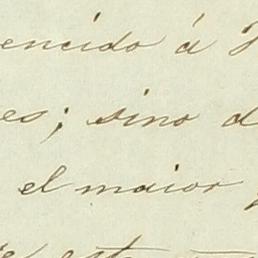 encido á
es; sino d
el maior
e esta